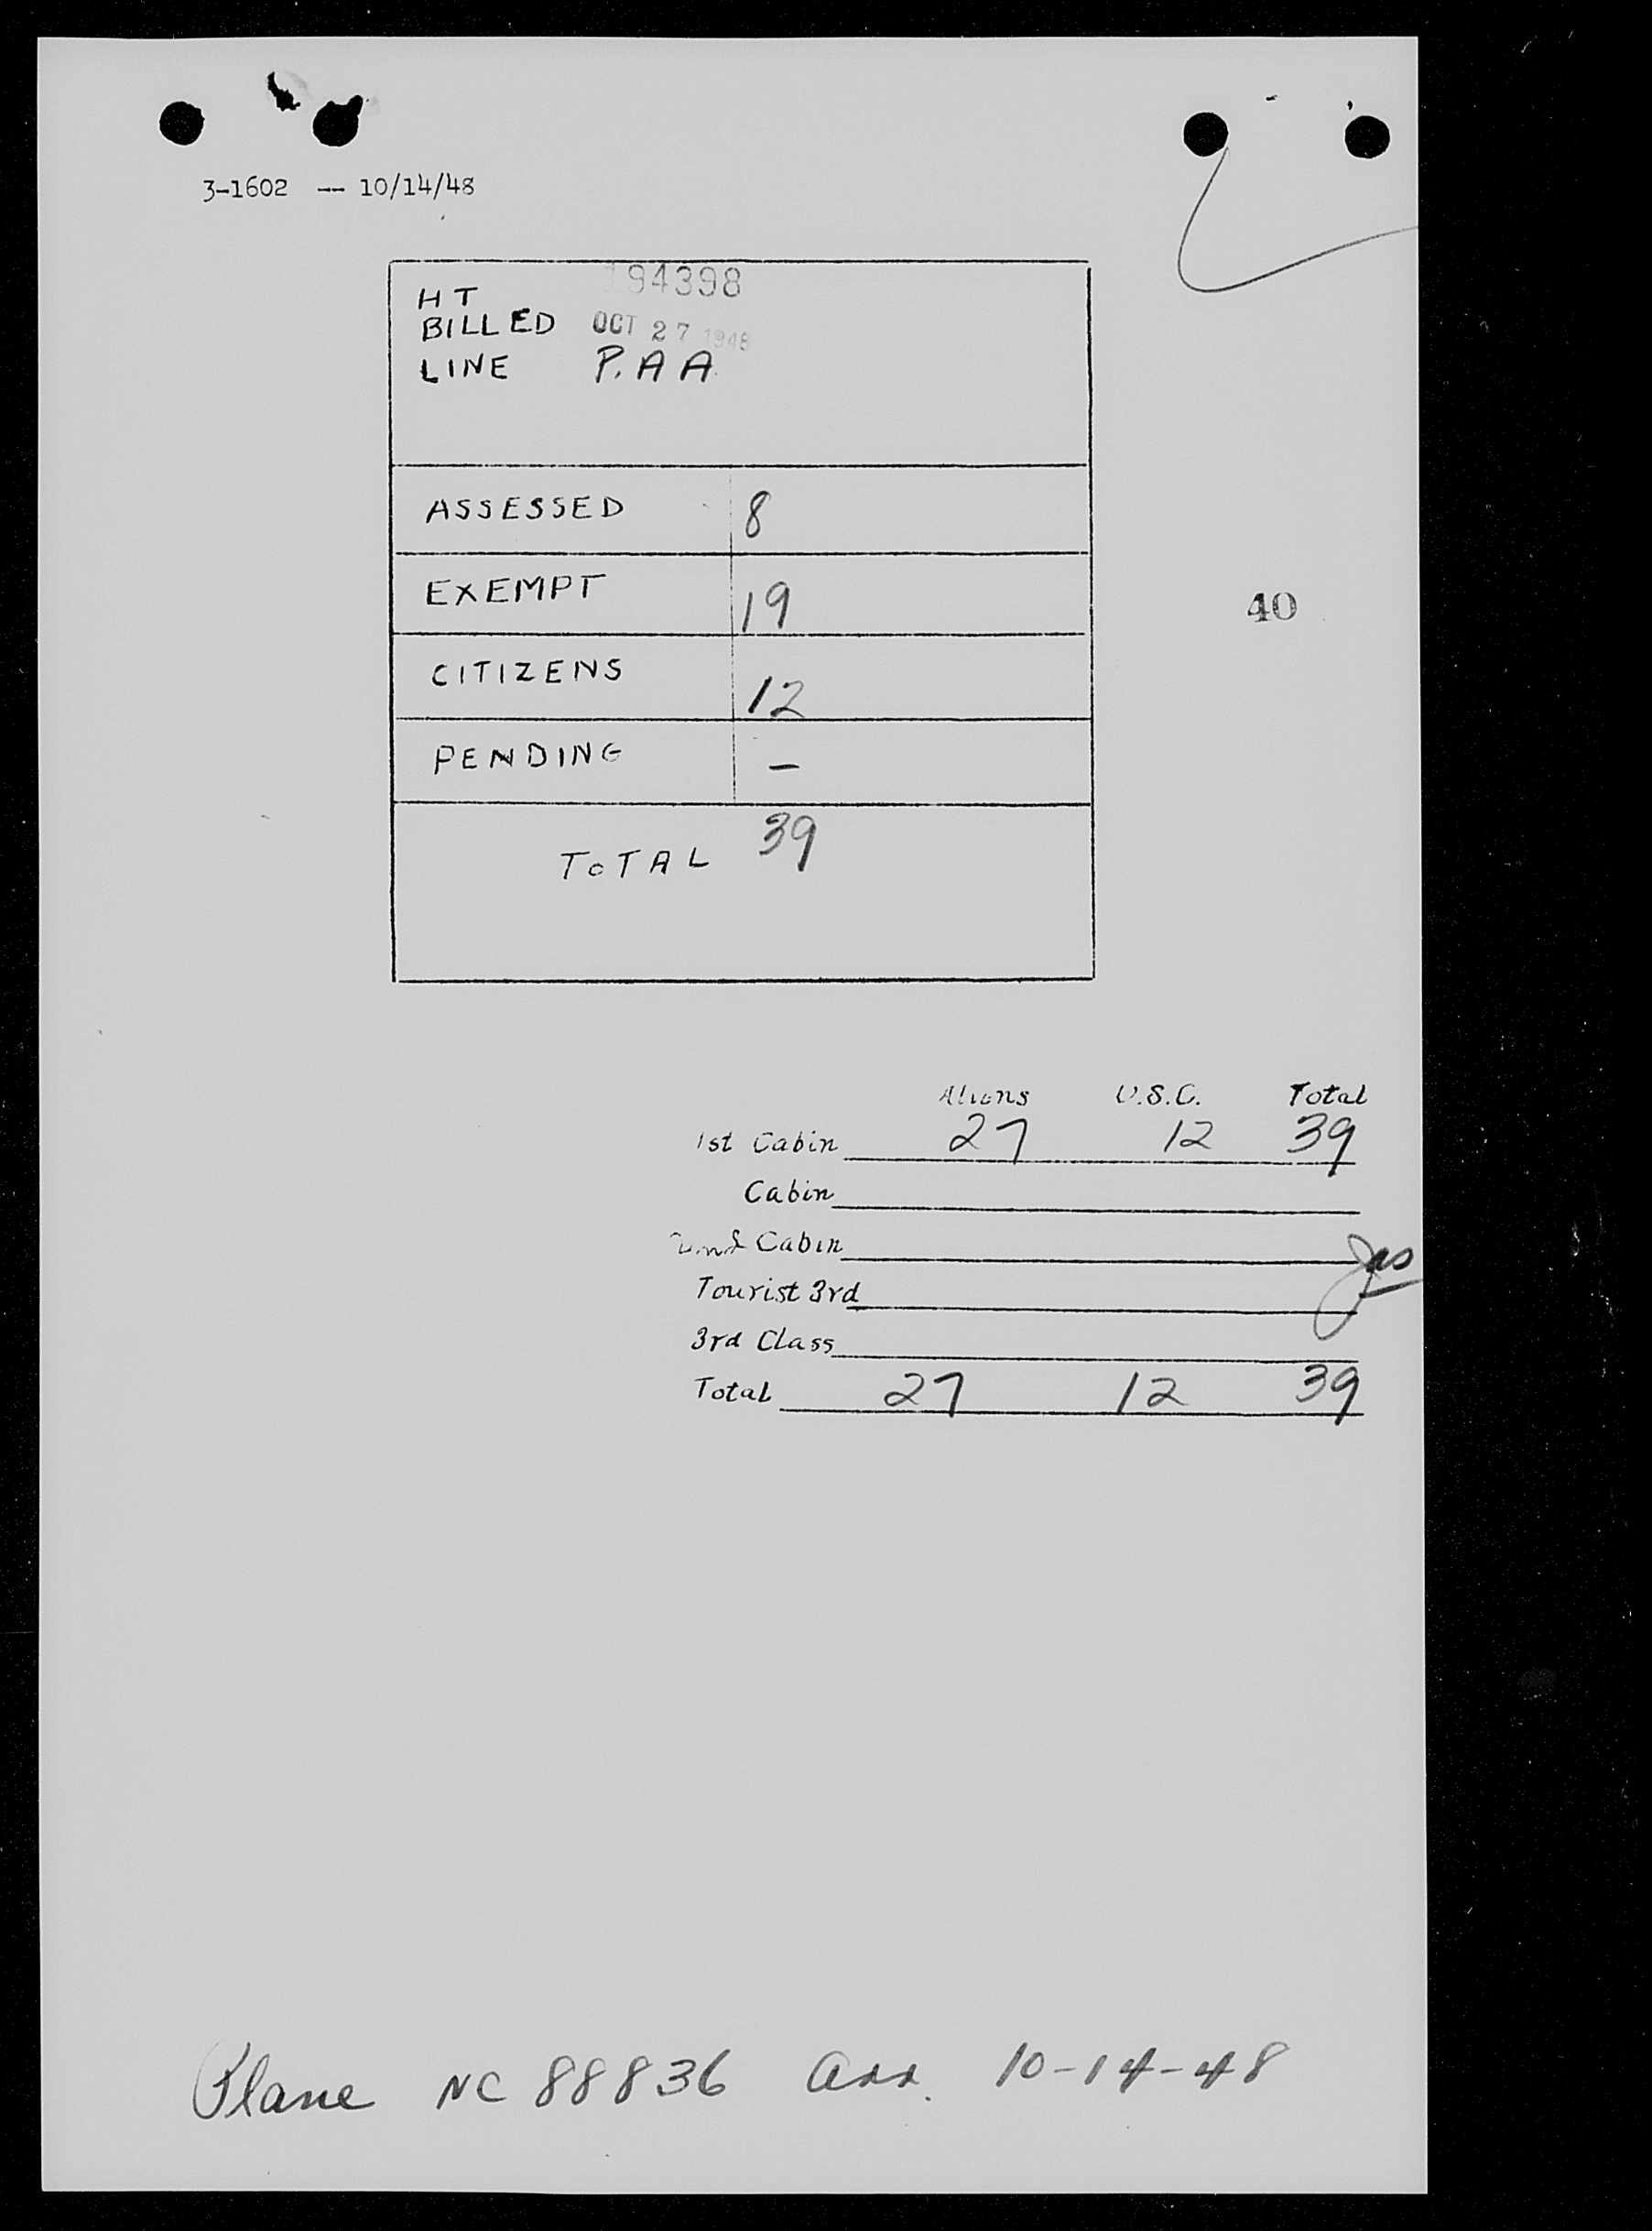 3-1602 -- 10/14/48
94398
HT
BILLED OCT 27 1948
LINE P.AA
ASSESSED 8
EXEMPT 19
40
CITIZENS 12
PENDING -
TOTAL 39
Aliens U.S.C. Total
1st Cabin 27 12 39
Cabin
Cabin
Tourist 3rd
3rd Class
Total 27 12 39
Plane NC 88836 arr. 10-14-48